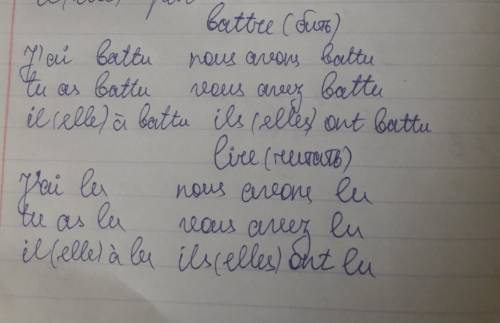 battre (бить)
J'ai battu nous avons battu
tu as battu vous avez battu
il (elle) à battu ils (elles) ont battu
lire (читать)
J'ai lu nous avons lu
tu as lu vous avez lu
il (elle) à lu ils (elles) ont lu